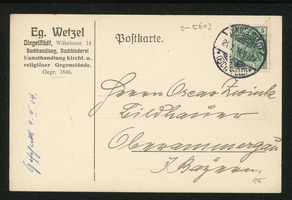 Eg. Wetzel
Dingelstädt, Wilhelmstr. 18
Buchhandlung, Buchbinderei
Kunsthandlung kirchl. u.
religiöser Gegenstände.
Gegr. 1846.
Postkarte.
0-5603
Herrn Oscar Zwink
Bildhauer
Oberammergau
i. Bayern.